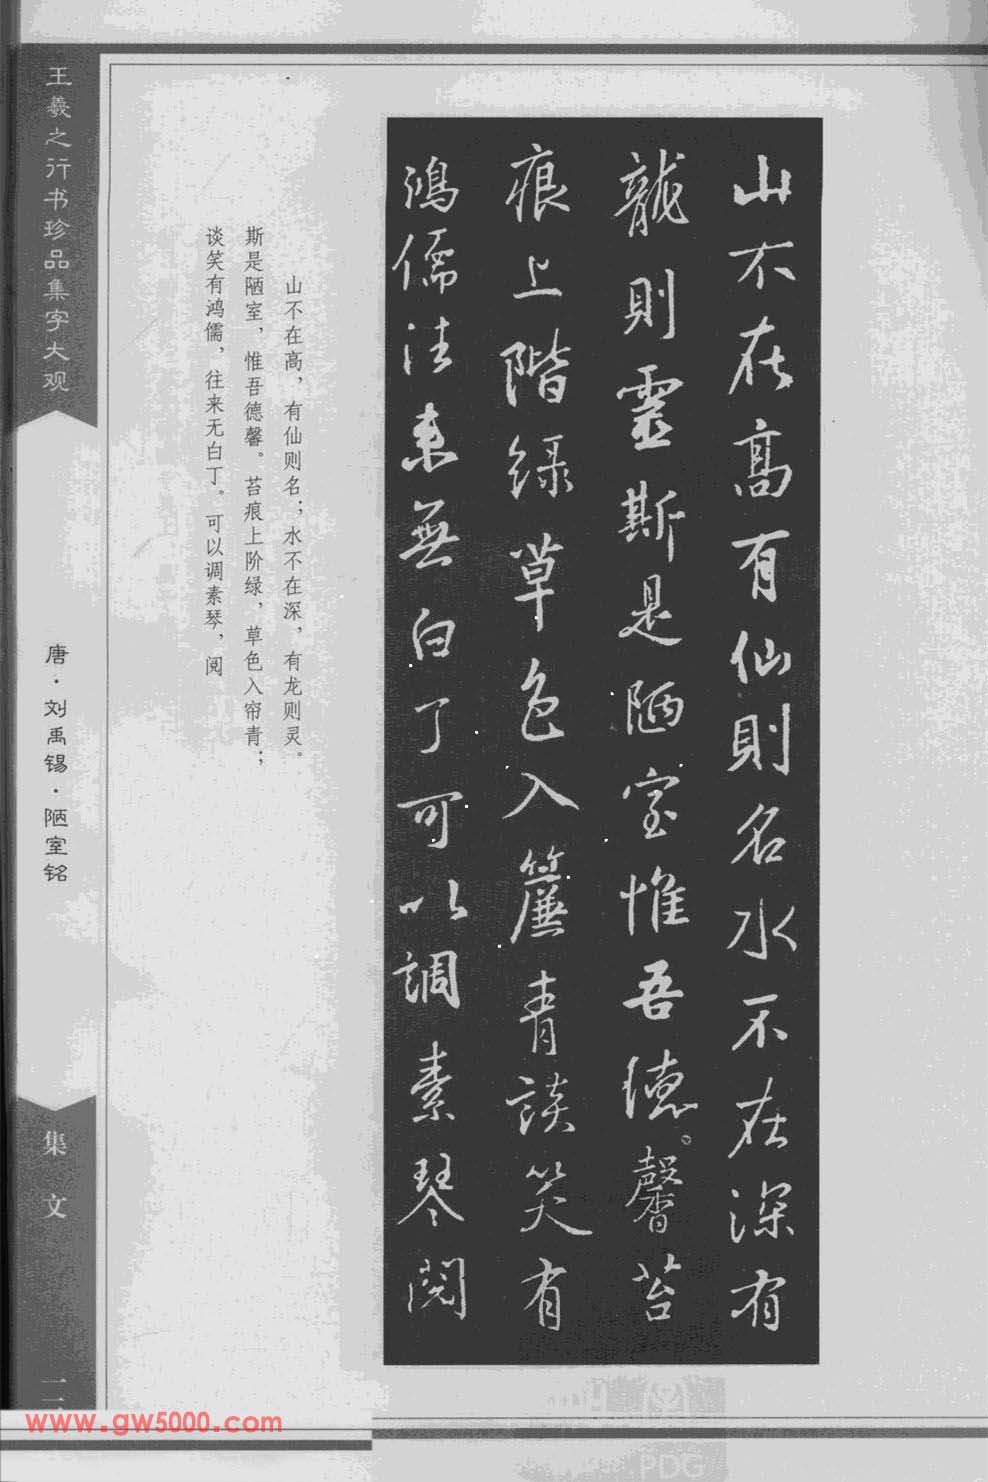 山不在高有仙則名水不在深有
龍則靈斯是陋室惟吾德馨苔
痕上階緑草色入簾青談笑有
鴻儒往来無白丁可以調素琴閲
山不在高，有仙则名；水不在深，有龙则灵。
斯是陋室，惟吾德馨。苔痕上阶绿，草色入帘青；
谈笑有鸿儒，往来无白丁。可以调素琴，阅
王羲之行书珍品集字大观
唐·刘禹锡·陋室铭
集文
www.gw5000.com
PDG